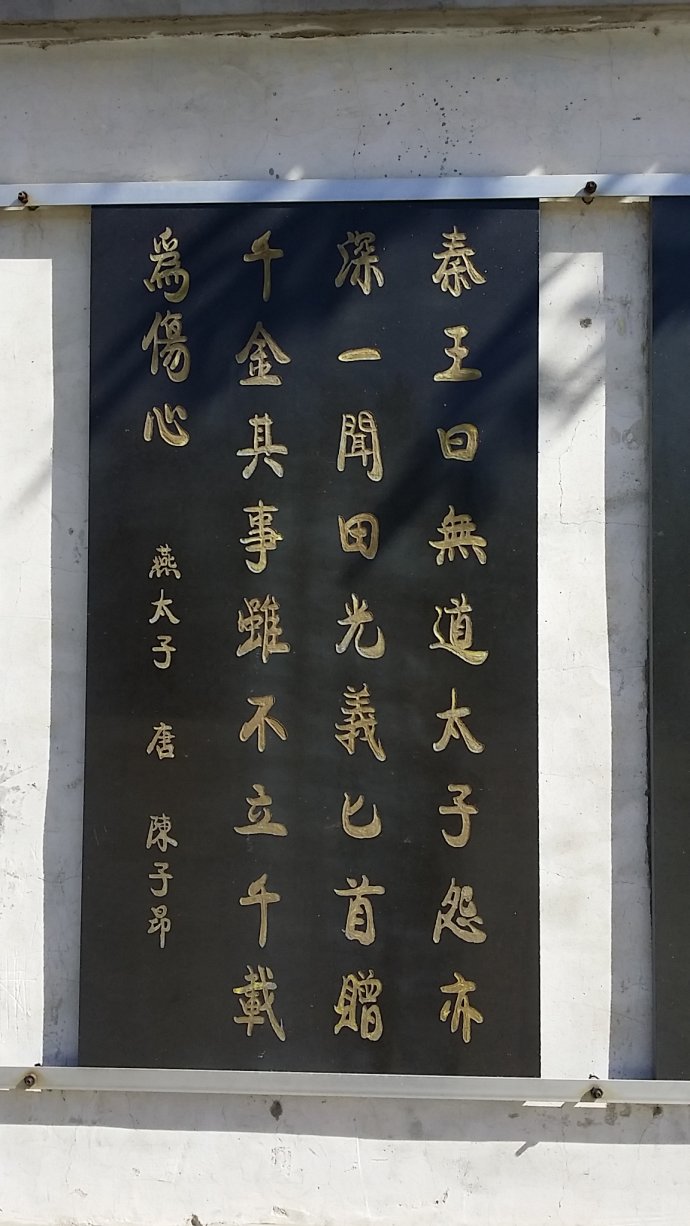 秦王曰無道太子怨亦
深一聞田光義匕首贈
千金其事雖不立千載
為傷心 燕太子 唐 陳子昂